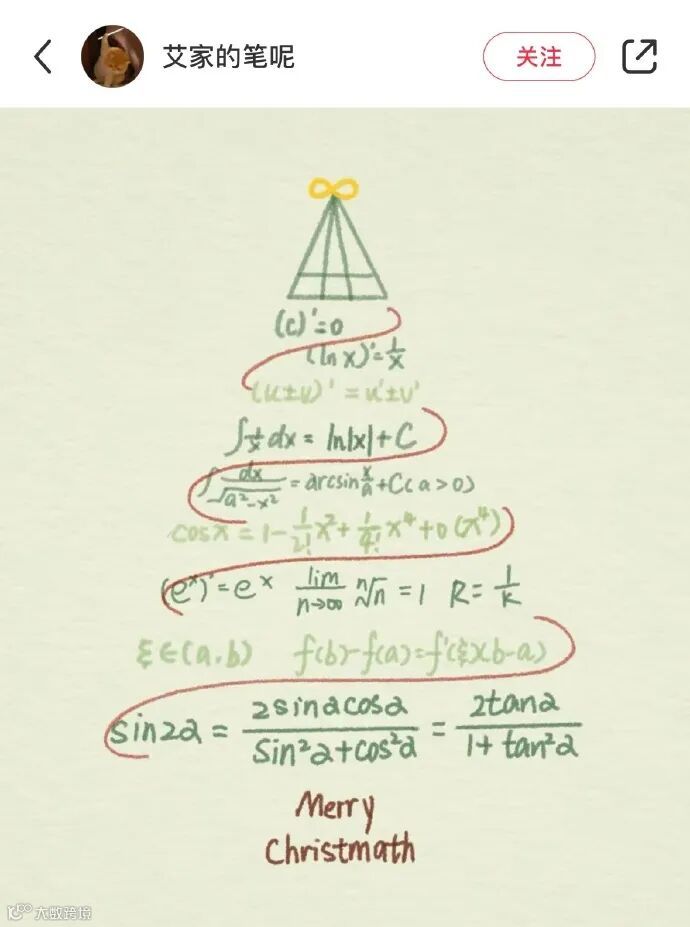 艾家的笔呢
关注
(c)'=0
(ln x)'=1/x
(u±v)'=u'±v'
∫1/x dx = ln|x|+C
∫dx/√(a²-x²) = arcsin x/a +C(a>0)
cosx = 1-1/2! x²+1/4! x⁴+o(x⁴)
(eˣ)'=eˣ lim n→∞ ⁿ√n =1 R=1/k
ξ∈(a,b) f(b)-f(a)=f'(ξ)(b-a)
sin2α = 2sinαcosα/sin²α+cos²α = 2tanα/1+tan²α
Merry
Christmath
大数跨境